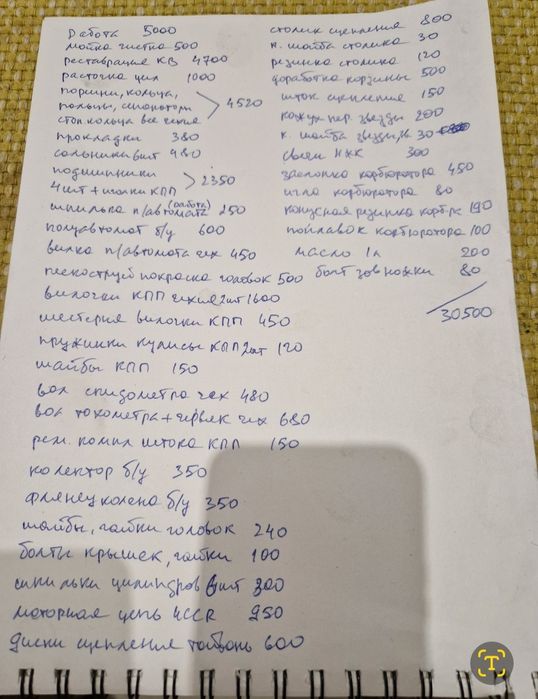 Работа 5000
мойка чистка 500
реставрация КВ 4700
расточка цил 1000
поршни, кольца,
пальцы, стопора
стоп. кольца все чехия
4520
прокладки 380
сальники 6шт 480
подшипники
4шт + шайки КПП
2350
шпилька п/автомата (работа) 250
полуавтомат б/у 600
вилка п/автомата чех 450
пескоструй покраска головок 500
вилочки КПП чехия 2шт 1600
шестерня вилочки КПП 450
пружинки кулисы КПП 2шт 120
шайбы КПП 150
вал спидометра чех 480
вал тохометра + червяк чех 680
рем. компл штока КПП 150
колектор б/у 350
флянец колена б/у 350
шайбы, гайки головок 240
болты крышек, гайки 100
шпильки цилиндров 8шт 300
моторная цепь ЧССР 950
диски сцепления тайвань 600
столик сцепления 800
н. шайба столика 30
резинка столика 120
доработка корзины 500
шток сцепления 150
кожух пер. звезды 200
к. шайба звезды 30
свечи НЖК 300
заслонка корбюратора 450
игла корбюратора 80
конусная резинка корб-ра 190
поплавок корбюротора 100
масло 1л 200
болт зав ножки 80
30500